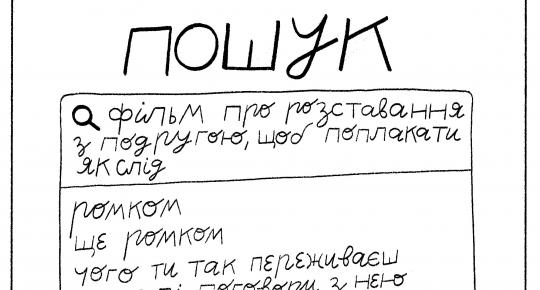 ПОШУК
фільм про розставання
з подругою, щоб поплакати
як слід
ромком
ще ромком
чого ти так переживаєш
поговори з нею